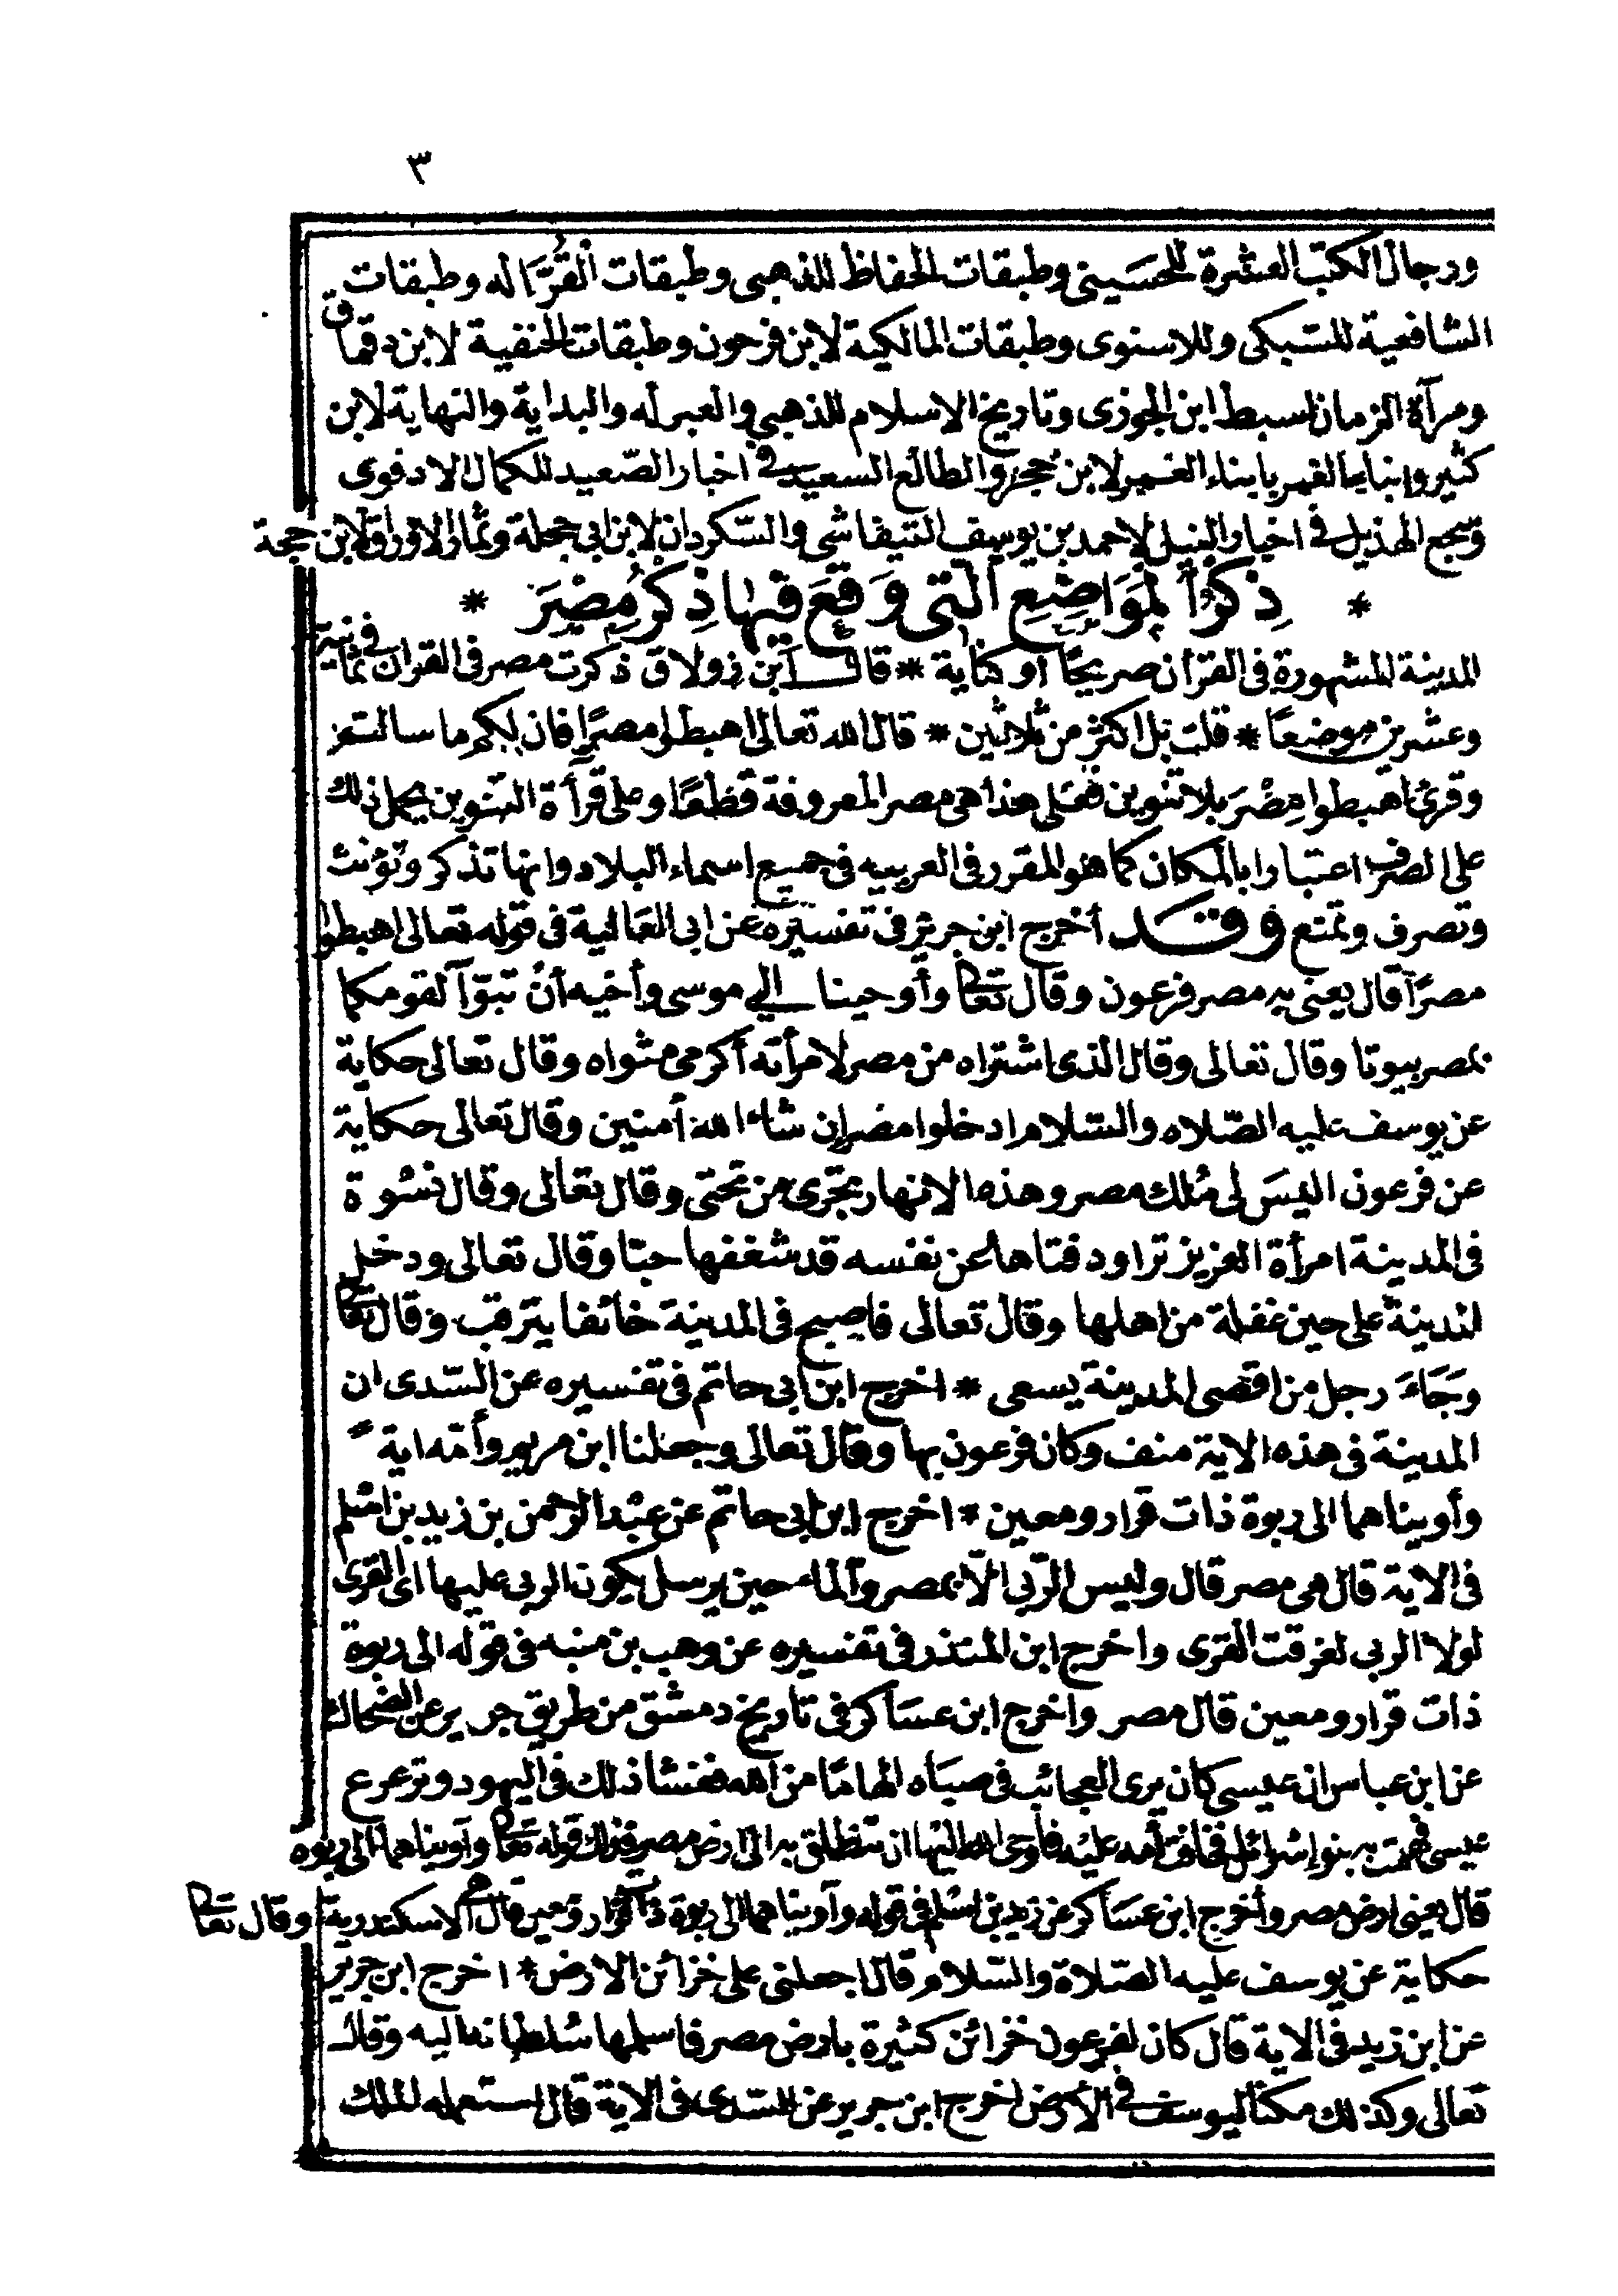 ٣
ورجال الكتب العشرة للحسينى وطبقات الحفاظ للذهبى وطبقات القُرَّا له وطبقات
الشافعية للسبكى وللاسنوى وطبقات المالكية لابن فرحون وطبقات الحنفية لابن دقماق
ومرآة الزمان لسبط ابن الجوزى وتاريخ الاسلام للذهبى والعبر له والبداية والنهاية لابن
كثير وانباء الغمر بابناء العمر لابن حجر والطالع السعيد فى اخبار الصّعيد للكمال الادفوى
وسجع الهذيل فى اخبار النيل لاحمد بن يوسف التيفاشى والسّكردان لابن ابى حجلة وثمار الاوراق لابن حجة
* ذِكْرُ المَوَاضِعِ الَّتى وَقَعَ فيهَا ذِكْرُ مِصْرَ *
المدينة المشهورة فى القرآن صريحًا أو كناية * قال ابن زولاق ذكرت مصر فى القرآن فى ثمانية
وعشرين موضعًا * قلت بل اكثر من ثلاثين * قال الله تعالى اهبطوا مصرًا فان لكم ما سالتم
وقرئ اهبطوا مِصْرَ بلا تنوين فعلى هذا هى مصر المعروفة قطعًا وعلى قرأة التنوين يحمل ذلك
على الصرف اعتبارا بالمكان كما هو المقرر فى العربيه فى جميع اسماء البلاد وانها تذكر وتؤنث
وتصرف وتمنع وقد أخرج ابن جرير فى تفسيره عن ابى العالية فى قوله تعالى اهبطوا
مصرًا قال يعنى به مصر فرعون وقال تعالى وأوحينا الى موسى وأخيه أنْ تبوّآ لقومكما
بمصر بيوتا وقال تعالى وقال الذى اشتراه من مصر لامرأته أكرمى مثواه وقال تعالى حكاية
عن يوسف عليه الصّلاه والسّلام ادخلوا مصر إن شاء الله آمنين وقال تعالى حكاية
عن فرعون اليسَ لى مُلك مصر وهذه الانهار تجْرى من تحتى وقال تعالى وقال نسْوة
فى المدينة امرأة العزيز تراود فتاها عن نفسه قد شغفها حبّا وقال تعالى ودخل
المدينة على حين غفلة من اهلها وقال تعالى فاصبح فى المدينة خائفا يترقب وقال تعالى
وَجَاءَ رجل من اقصى المدينة يسعى * اخرج ابن ابى حاتم فى تفسيره عن السّدى ان
المدينة فى هذه الاية منف وكان فرعون بها وقال تعالى وجعلنا ابن مريم وأمّه اية
وأويناهما الى ربوة ذات قرار ومعين * اخرج ابن ابى حاتم عن عبْد الرحمن بن زيد بن اسْلم
فى الاية قال هى مصر قال وليس الرّبى الّا بمصر والماء حين يرسل يكون الربى عليها اى القرى
لولا الربى لغرقت القرى واخرج ابن المنذر فى تفسيره عن وهب بن منبه فى قوله الى ربوة
ذات قرار ومعين قال مصر واخرج ابن عسَاكر فى تاريخ دمشق من طريق جرير عن الضحاك
عن ابن عباس ان عيسى كان يرى العجائب فى صباه الهامًا من الله ففشا ذلك فى اليهود وترعرع
عيسى فهمّت به بنو إسْرائل فخافت أمه عليْه فأوحى الله اليْها ان تنطلق به الى ارض مصر فذلك قوله تعالى وآويناهما الى ربوه
قال يعنى ارض مصر وأخرج ابن عسَاكر عن زيد بن اسْلم فى قوله وآويناهما الى ربوة ذات قرار ومعين قال هى الاسكندرية وقال تعالى
حكاية عن يوسف عليه الصّلاة والسّلام قال اجعلنى على خزائن الارض * اخرج ابن جرير
عن ابن زيد فى الاية قال كان لفرعون خزائن كثيرة بارض مصر فاسلمها سُلطانه اليه وقال
تعالى وكذلك مكنا ليوسف فى الأرض اخرج ابن جرير عن السّدى فى الاية قال استعمله الملك